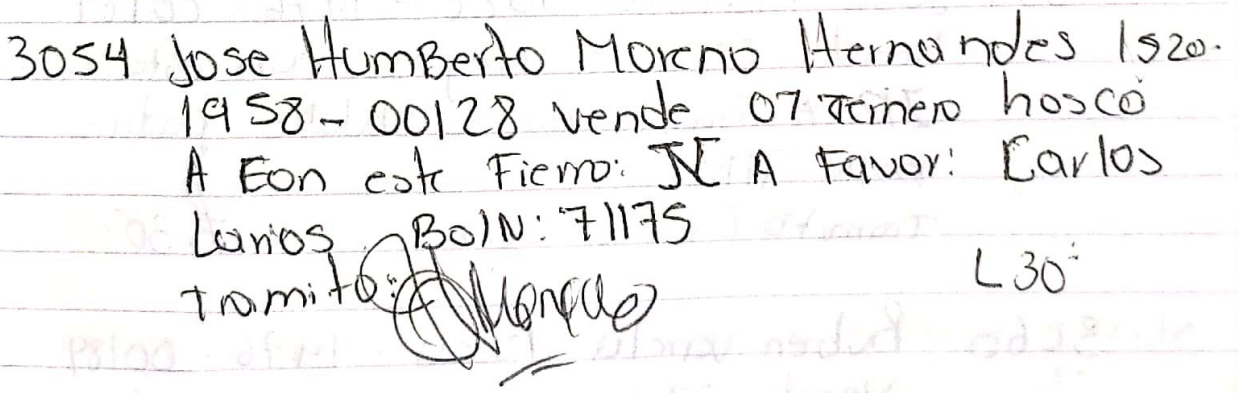 3054 Jose HumBerto Moreno Hernandes 1520-
1958-00128 vende 07 Ternero hosco
A Eon este Fierro: A Favor: Carlos
Larios Bo/N: 71175
L30
tramito: